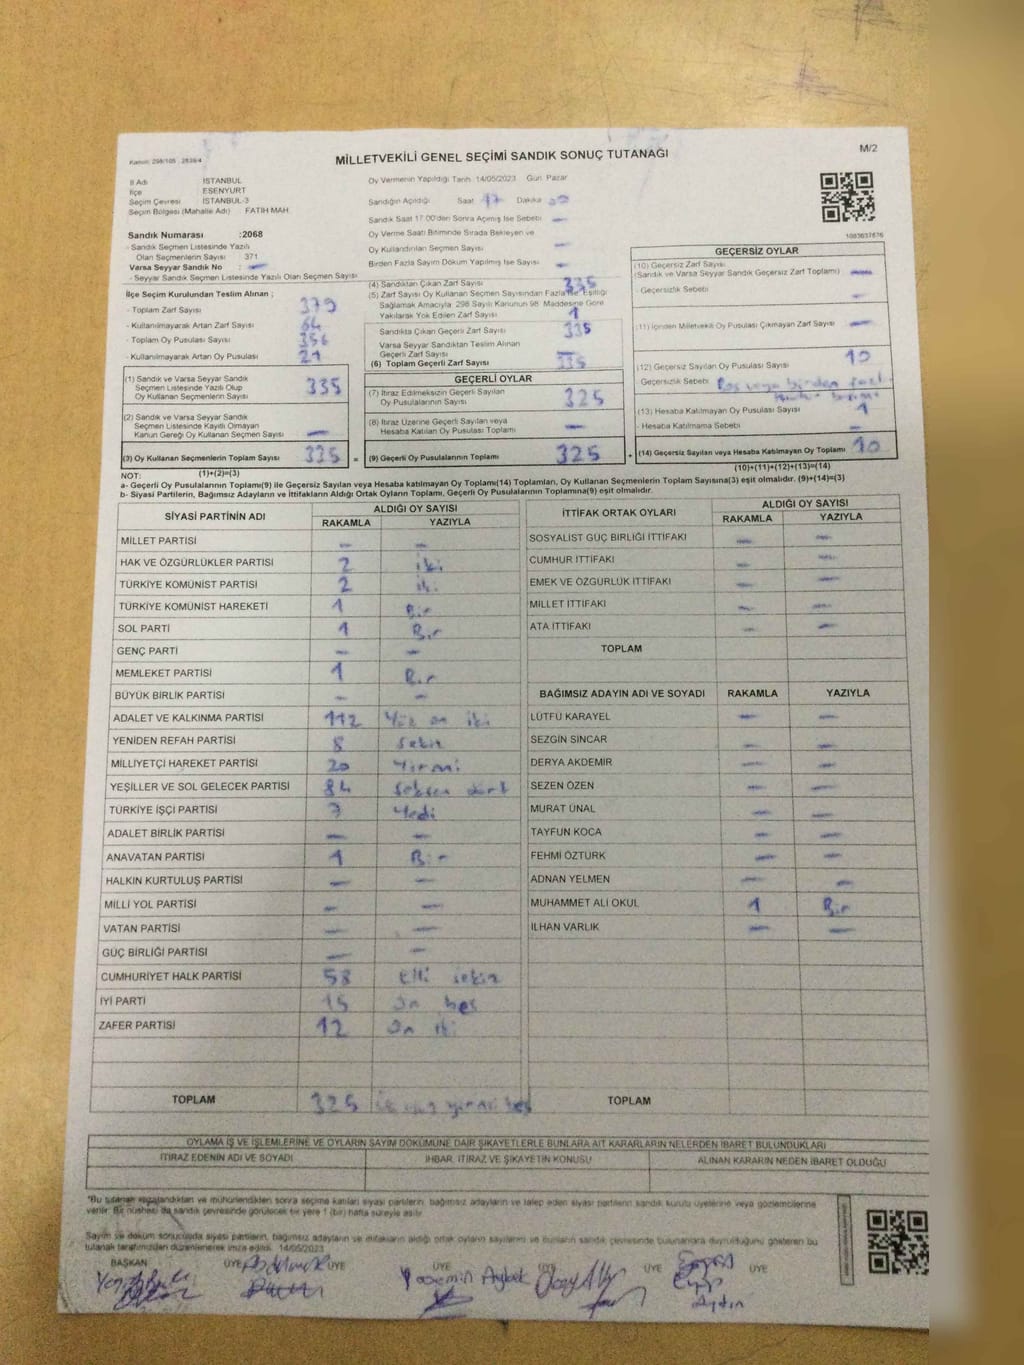 Kanun: 298/105 , 2839/4
MİLLETVEKİLİ GENEL SEÇİMİ SANDIK SONUÇ TUTANAĞI
M/2
İl Adı İSTANBUL
İlçe ESENYURT
Seçim Çevresi İSTANBUL-3
Seçim Bölgesi (Mahalle Adı) FATİH MAH
Oy Vermenin Yapıldığı Tarih 14/05/2023 Gün Pazar
Sandığın Açıldığı Saat 17 Dakika
Sandık Saat 17:00'den Sonra Açılmış İse Sebebi -
Oy Verme Saati Bitiminde Sırada Bekleyen ve
Oy Kullandırılan Seçmen Sayısı -
Birden Fazla Sayım Döküm Yapılmış İse Sayısı -
Sandık Numarası :2068
- Sandık Seçmen Listesinde Yazılı
Olan Seçmenlerin Sayısı 371
Varsa Seyyar Sandık No : -
- Seyyar Sandık Seçmen Listesinde Yazılı Olan Seçmen Sayısı
İlçe Seçim Kurulundan Teslim Alınan ;
- Toplam Zarf Sayısı 379
- Kullanılmayarak Artan Zarf Sayısı 64
- Toplam Oy Pusulası Sayısı 356
- Kullanılmayarak Artan Oy Pusulası 21
(1) Sandık ve Varsa Seyyar Sandık
Seçmen Listesinde Yazılı Olup
Oy Kullanan Seçmenlerin Sayısı 335
(2) Sandık ve Varsa Seyyar Sandık
Seçmen Listesinde Kayıtlı Olmayan
Kanun Gereği Oy Kullanan Seçmen Sayısı -
(3) Oy Kullanan Seçmenlerin Toplam Sayısı 335 =
(1)+(2)=(3)
(4) Sandıktan Çıkan Zarf Sayısı 335
(5) Zarf Sayısı Oy Kullanan Seçmen Sayısından Fazla İse, Eşitliği
Sağlamak Amacıyla 298 Sayılı Kanunun 98. Maddesine Göre
Yakılarak Yok Edilen Zarf Sayısı
Sandıkta Çıkan Geçerli Zarf Sayısı 335
Varsa Seyyar Sandıktan Teslim Alınan
Geçerli Zarf Sayısı -
(6) Toplam Geçerli Zarf Sayısı 335
GEÇERLİ OYLAR
(7) İtiraz Edilmeksizin Geçerli Sayılan
Oy Pusulalarının Sayısı 325
(8) İtiraz Üzerine Geçerli Sayılan veya
Hesaba Katılan Oy Pusulası Toplamı -
(9) Geçerli Oy Pusulalarının Toplamı 325 +
1083637676
GEÇERSİZ OYLAR
(10) Geçersiz Zarf Sayısı
(Sandık ve Varsa Seyyar Sandık Geçersiz Zarf Toplamı) -
- Geçersizlik Sebebi -
(11) İçinden Milletvekili Oy Pusulası Çıkmayan Zarf Sayısı -
(12) Geçersiz Sayılan Oy Pusulası Sayısı 10
Geçersizlik Sebebi Boş veya birden fazla
(13) Hesaba Katılmayan Oy Pusulası Sayısı
- Hesaba Katılmama Sebebi -
(14) Geçersiz Sayılan veya Hesaba Katılmayan Oy Toplamı 10
(10)+(11)+(12)+(13)=(14)
NOT:
a- Geçerli Oy Pusulalarının Toplamı(9) ile Geçersiz Sayılan veya Hesaba katılmayan Oy Toplamı(14) Toplamları, Oy Kullanan Seçmenlerin Toplam Sayısına(3) eşit olmalıdır. (9)+(14)=(3)
b- Siyasi Partilerin, Bağımsız Adayların ve İttifakların Aldığı Ortak Oyların Toplamı, Geçerli Oy Pusulalarının Toplamına(9) eşit olmalıdır.
SİYASİ PARTİNİN ADI ALDIĞI OY SAYISI
RAKAMLA YAZIYLA
MİLLET PARTİSİ - -
HAK VE ÖZGÜRLÜKLER PARTİSİ 2 iki
TÜRKİYE KOMÜNİST PARTİSİ 2 iki
TÜRKİYE KOMÜNİST HAREKETİ 1 Bir
SOL PARTİ 1 Bir
GENÇ PARTİ - -
MEMLEKET PARTİSİ 1 Bir
BÜYÜK BİRLİK PARTİSİ - -
ADALET VE KALKINMA PARTİSİ 112 Yüz on iki
YENİDEN REFAH PARTİSİ 8 sekiz
MİLLİYETÇİ HAREKET PARTİSİ 20 Yirmi
YEŞİLLER VE SOL GELECEK PARTİSİ 84 seksen dört
TÜRKİYE İŞÇİ PARTİSİ 7 Yedi
ADALET BİRLİK PARTİSİ - -
ANAVATAN PARTİSİ 1 Bir
HALKIN KURTULUŞ PARTİSİ - -
MİLLİ YOL PARTİSİ - -
VATAN PARTİSİ - -
GÜÇ BİRLİĞİ PARTİSİ - -
CUMHURİYET HALK PARTİSİ 58 Elli sekiz
İYİ PARTİ 15 On beş
ZAFER PARTİSİ 12 On iki
TOPLAM 325 üç yüz yirmi beş
İTTİFAK ORTAK OYLARI ALDIĞI OY SAYISI
RAKAMLA YAZIYLA
SOSYALİST GÜÇ BİRLİĞİ İTTİFAKI - -
CUMHUR İTTİFAKI - -
EMEK VE ÖZGÜRLÜK İTTİFAKI - -
MİLLET İTTİFAKI - -
ATA İTTİFAKI - -
TOPLAM
BAĞIMSIZ ADAYIN ADI VE SOYADI RAKAMLA YAZIYLA
LÜTFÜ KARAYEL - -
SEZGİN SİNCAR - -
DERYA AKDEMİR - -
SEZEN ÖZEN - -
MURAT ÜNAL - -
TAYFUN KOCA - -
FEHMİ ÖZTÜRK - -
ADNAN YELMEN - -
MUHAMMET ALİ OKUL 1 Bir
İLHAN VARLIK - -
TOPLAM
OYLAMA İŞ VE İŞLEMLERİNE VE OYLARIN SAYIM DÖKÜMÜNE DAİR ŞİKAYETLERLE BUNLARA AİT KARARLARIN NELERDEN İBARET BULUNDUKLARI
İTİRAZ EDENİN ADI VE SOYADI İHBAR, İTİRAZ VE ŞİKAYETİN KONUSU ALINAN KARARIN NEDEN İBARET OLDUĞU
"Bu tutanak imzalandıktan ve mühürlendikten sonra seçime katılan siyasi partilerin, bağımsız adayların ve talep eden siyasi partilerin sandık kurulu üyelerine veya gözlemcilerine
verilir. Bir nüshası da sandık çevresinde görülecek bir yere 1 (bir) hafta süreyle asılır.
Sayım ve döküm sonucunda siyasi partilerin, bağımsız adayların ve ittifakların aldığı ortak oyların sayılarını ve bunların sandık çevresinde bulunanlara duyrulduğunu gösteren bu
tutanak tarafımızdan düzenlenerek imza edildi. 14/05/2023
BAŞKAN ÜYE ÜYE ÜYE ÜYE ÜYE ÜYE
Yasemin Aybek
Aydın